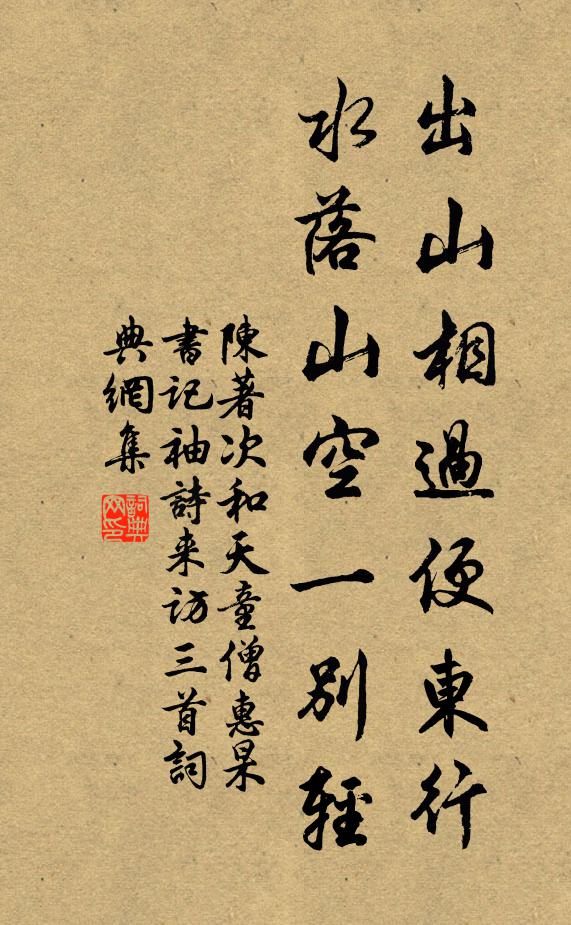 出山相過便東行
水落山空一別輕
陳著次和天童僧惠杲
書記袖詩来访三首詞
典網集
詞典
网印